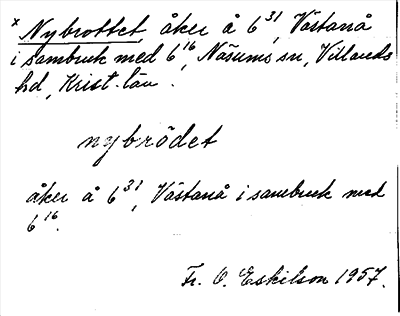 x Nybrottet, åker å 6³¹, Västanå
i sambruk med 6¹⁶, Näsums sn, Villands
hd, Krist. län.
nybrödet
åker å 6³¹, Västanå i sambruk med
6¹⁶.
Fr. O. Eskilson 1957.